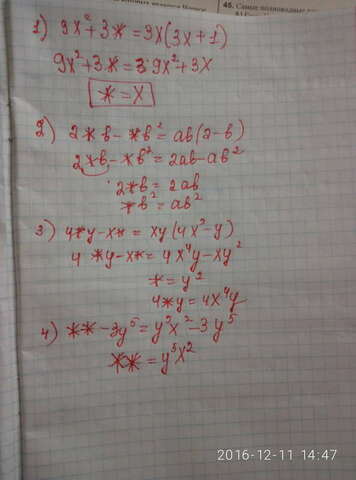 45. Самые полноводные р
1) 9x²+3*=3x(3x+1)
9x²+3*=3·9x²+3x
*=x
2) 2*b-*b²=ab(2-b)
2*b-*b²=2ab-ab²
2*b=2ab
*b²=ab²
3) 4*y-x*=xy(4x³-y)
4*y-x*=4x⁴y-xy²
*=y²
4*y=4x⁴y
4) **-3y⁵=y³x²-3y⁵
**=y³x²
2016-12-11 14:47